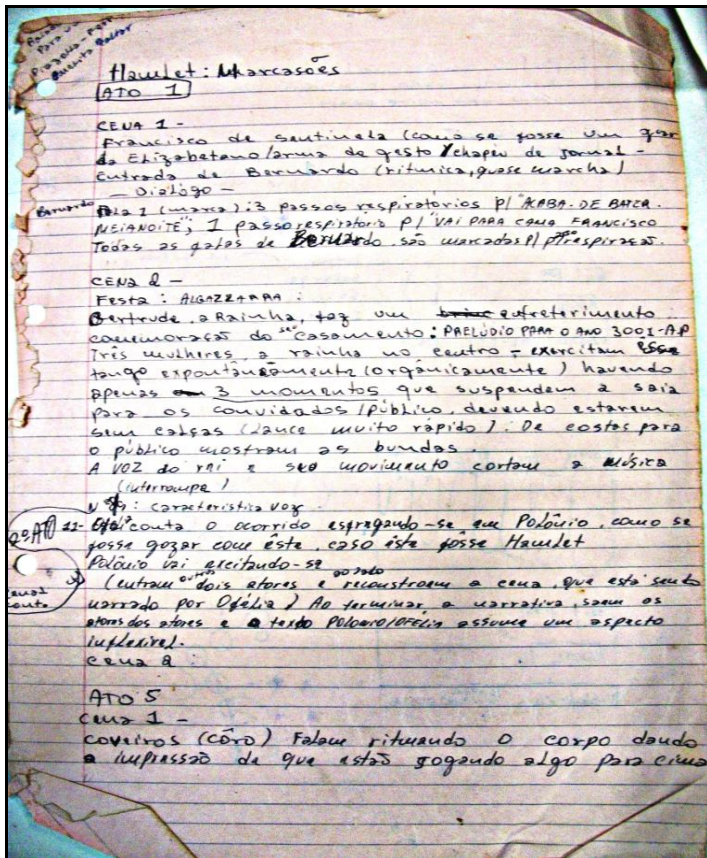 Para un
Piazzolla -
Hamlet: Marcasões
ATO 1
CENA 1 -
Francisco de sentinela (como se fosse um guar
da Elizabetano / arma de gesto / chapéu de jornal -
Entrada de Bernardo (rítmica, quase marcha)
- Diálogo -
Bernardo
Fala 1 (marca): 3 passos respiratórios p/ "ACABA. DE BATER.
MEIANOITE"; 1 passo respiratório p/ "VAI PARA CAMA FRANCISCO
Todas as falas de Bernardo são marcadas p/ respirasão.
CENA 2 -
Festa: ALGAZZARRA:
Gertrude, a Rainha, faz um entreterimento
comemorasão do seu casamento: PRELÚDIO PARA O ANO 3001-A.P
Três mulheres, a rainha no centro - exercitam esse
tango expontâneamente (orgânicamente) havendo
apenas 3 momentos que suspendem a saia
para os convidados / público, devendo estarem
sem calsas (lance muito rápido). De costas para
o público mostram as bundas.
A VOZ do rei e seu movimento cortam a música
(interrompe)
característica voz
2º ATO
conta o ocorrido esfregando-se em Polônio, como se
fosse gozar com êste, caso êste fôsse Hamlet
Polônio vai excitando-se
(entram outros dois atores e reconstroem a cena, que está sendo
narrado por Ofélia) Ao terminar a narrativa, saem os
atores dos atores e o texto POLONIO/OFELIA assume um aspecto
inflexível.
cena 2
ATO 5
Cena 1 -
COVEIROS (CÔRO) Falam ritmando o corpo dando
a impressão de que estão jogando algo para cima